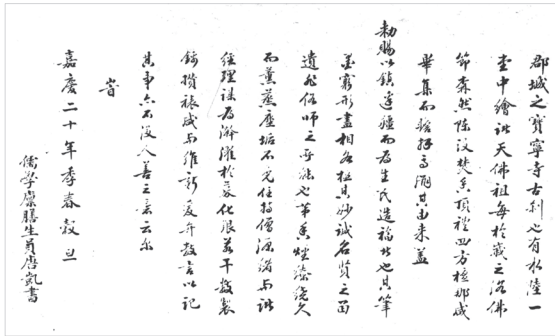 郡城之寶寧寺古刹也有水陸一
堂中繪諸天佛祖每於歲之浴佛
節森然陳設焚香頂禮四方檀那咸
畢集而瞻拜焉溯其由來蓋
勅賜以鎮邊疆而為生民造福者也其筆
墨窮形盡相各極其妙誠名賢之留
遺非俗師之所能也第香煙漆繞久
而薰蒸塵垢不免住持僧源緒與諸
經理謀為澣濯於是化銀若干敬製
錦攢裱咸與維新爰弁數言以記
其事亦不沒人善之意云尔
旹
嘉慶二十年季春穀旦
儒學廩膳生員唐凱書